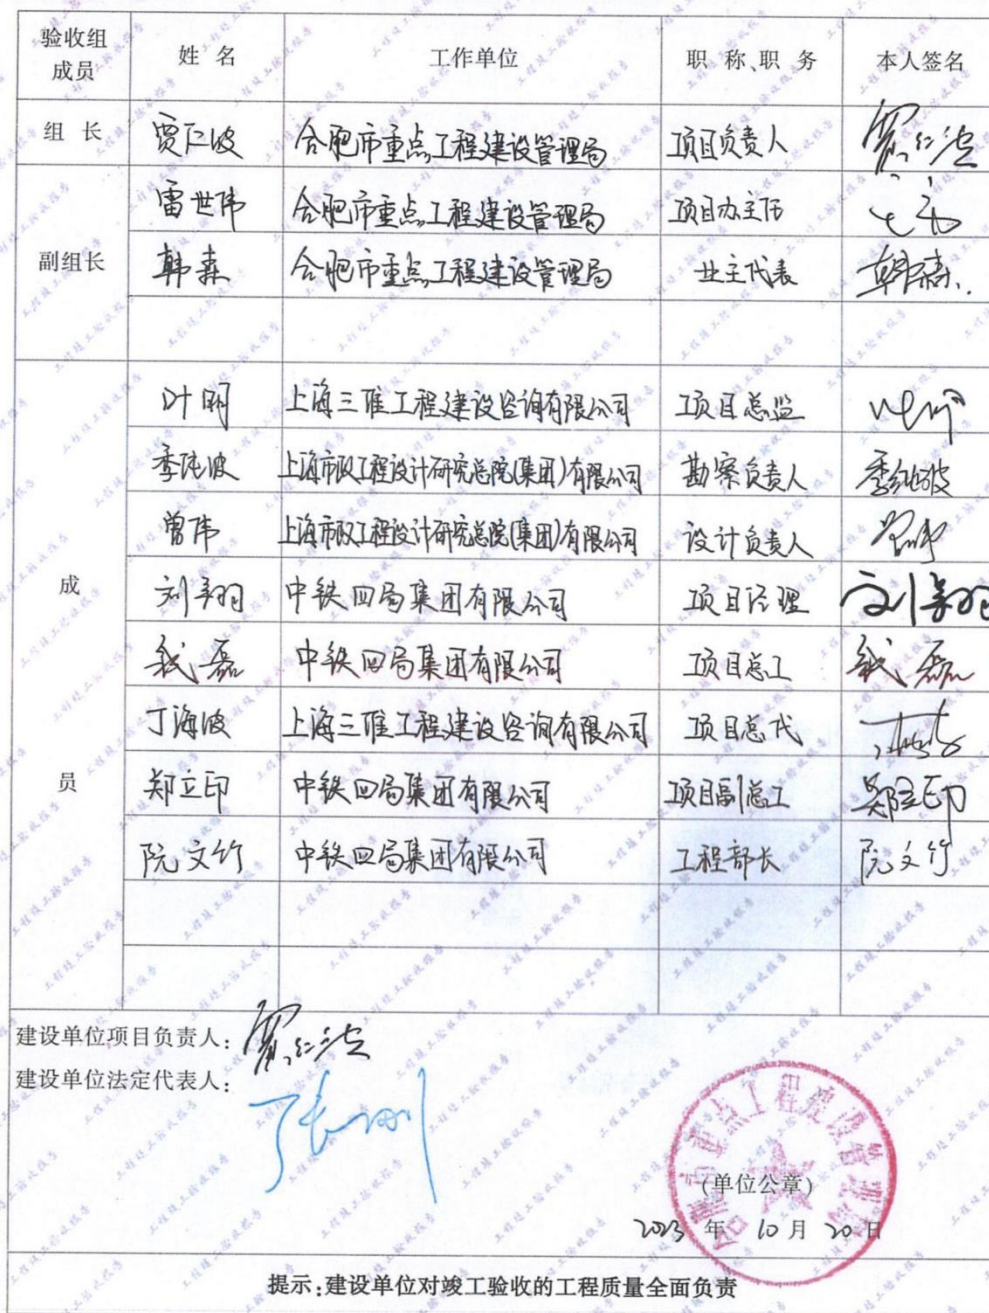 验收组成员 姓 名 工作单位 职 称、职 务 本人签名
组 长 贾仁波 合肥市重点工程建设管理局 项目负责人
副组长 雷世伟 合肥市重点工程建设管理局 项目办主任
韩森 合肥市重点工程建设管理局 业主代表 韩森
成员 叶明 上海三维工程建设咨询有限公司 项目总监
季纯波 上海市政工程设计研究总院(集团)有限公司 勘察负责人 季纯波
曾伟 上海市政工程设计研究总院(集团)有限公司 设计负责人 曾伟
刘翔 中铁四局集团有限公司 项目经理 刘翔
钱磊 中铁四局集团有限公司 项目总工 钱磊
丁海波 上海三维工程建设咨询有限公司 项目总代
郑立印 中铁四局集团有限公司 项目副总工 郑立印
阮文竹 中铁四局集团有限公司 工程部长 阮文竹
建设单位项目负责人:
建设单位法定代表人:
合肥市重点工程建设管理局
(单位公章)
2023 年 10 月 20 日
提示:建设单位对竣工验收的工程质量全面负责
工程竣工验收报告